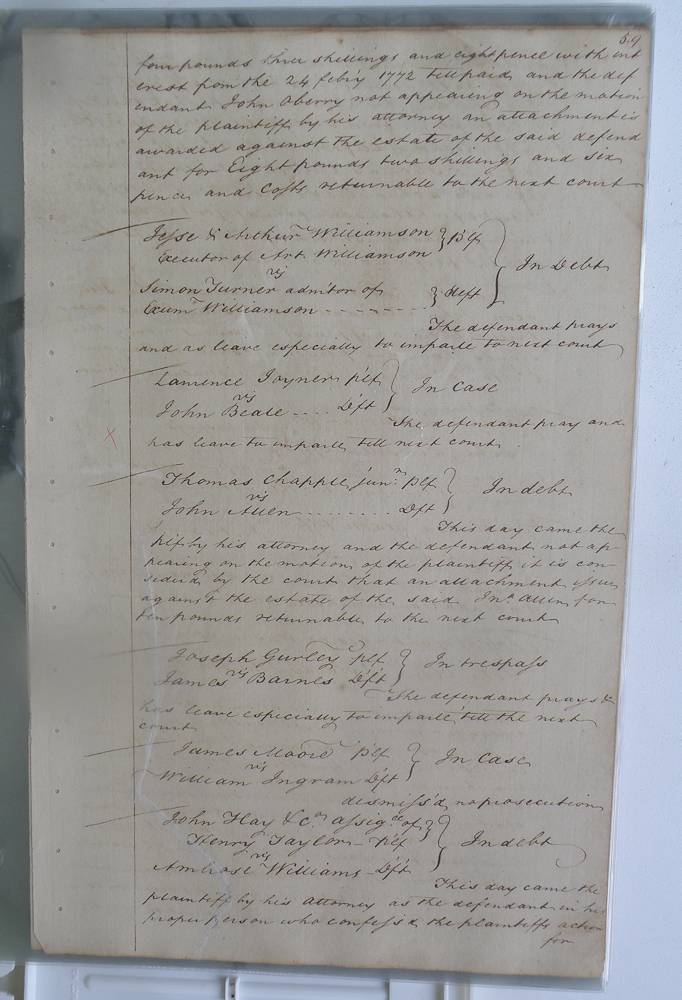 59
four pounds three shillings and eight pence with int
erest from the 24 feb'y 1772 till paid, and the def
endant John Oberry not appearing on the motion
of the plaintiff by his attorney an attachment is
awarded against the estate of the said defend
ant for Eight pounds two shillings and six
pence and Costs returnable to the next court
Jesse & Arthur Williamson } plf
Executor of Art. Williamson
vs } In Debt
Simon Turner admitor of } deft
Exum Williamson - - - - - - -
The defendant prays
and as leave especially to imparle to next court
Lawrence Joyner plf } In Case
vs
John Beale .... Deft
The defendant pray and
has leave to imparle till next court
Thomas Chapple junr plf } In debt
vs
John Allen ......... Dft
This day came the
plf by his attorney and the defendant not ap-
pearing on the motion of the plaintiff it is con-
sider'd by the court that an attachment issue
against the estate of the said Jno. Allen for
ten pounds returnable to the next court
Joseph Gurley plf } In trespass
vs
James Barnes Deft
The defendant prays &
has leave especially to imparle till the next
court
James Moore plf } In Case
vs
William Ingram Dft
desmiss'd no prosecution
John Hay & Co. assignee of }
Henry Taylor - plf } In debt
vs
Ambrose Williams - Dft
This day came the
plaintiff by his attorney as the defendant in his
proper person who confess'd the plaintiffs action
for